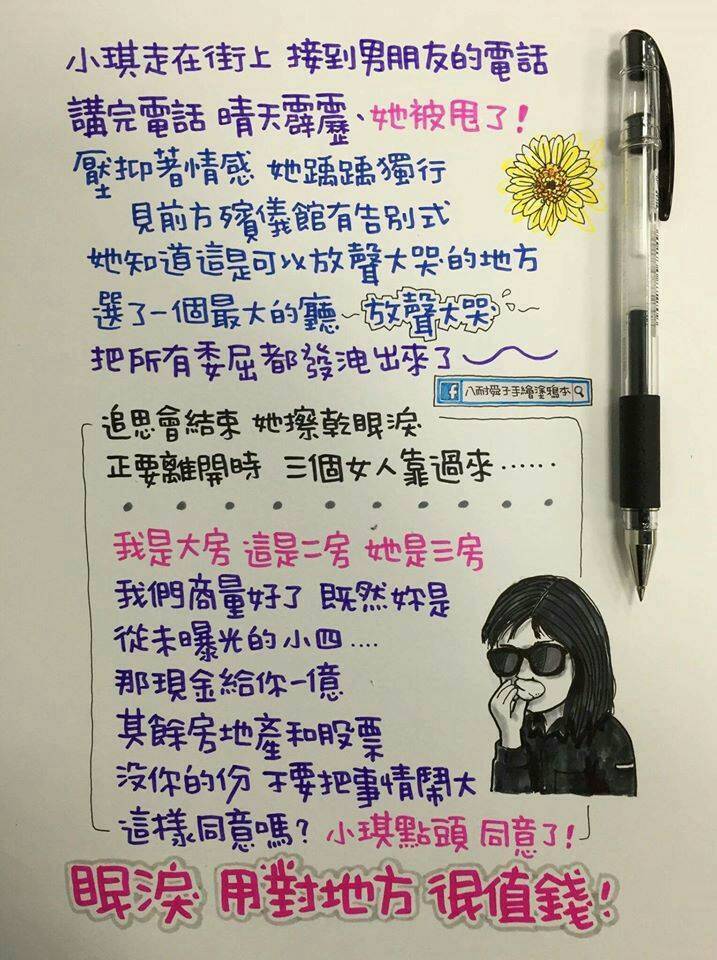 小琪走在街上 接到男朋友的電話
講完電話 晴天霹靂、她被甩了!
壓抑著情感 她踽踽獨行
見前方殯儀館有告別式
她知道這是可以放聲大哭的地方
選了一個最大的廳~放聲大哭
把所有委屈都發洩出來了~~
f 八耐舜子手繪塗鴉本
追思會結束 她擦乾眼淚
正要離開時 三個女人靠過來……
我是大房 這是二房 她是三房
我們商量好了 既然妳是
從未曝光的小四....
那現金給你一億
其餘房地產和股票
沒你的份 不要把事情鬧大
這樣同意嗎? 小琪點頭 同意了!
眼淚 用對地方 很值錢!